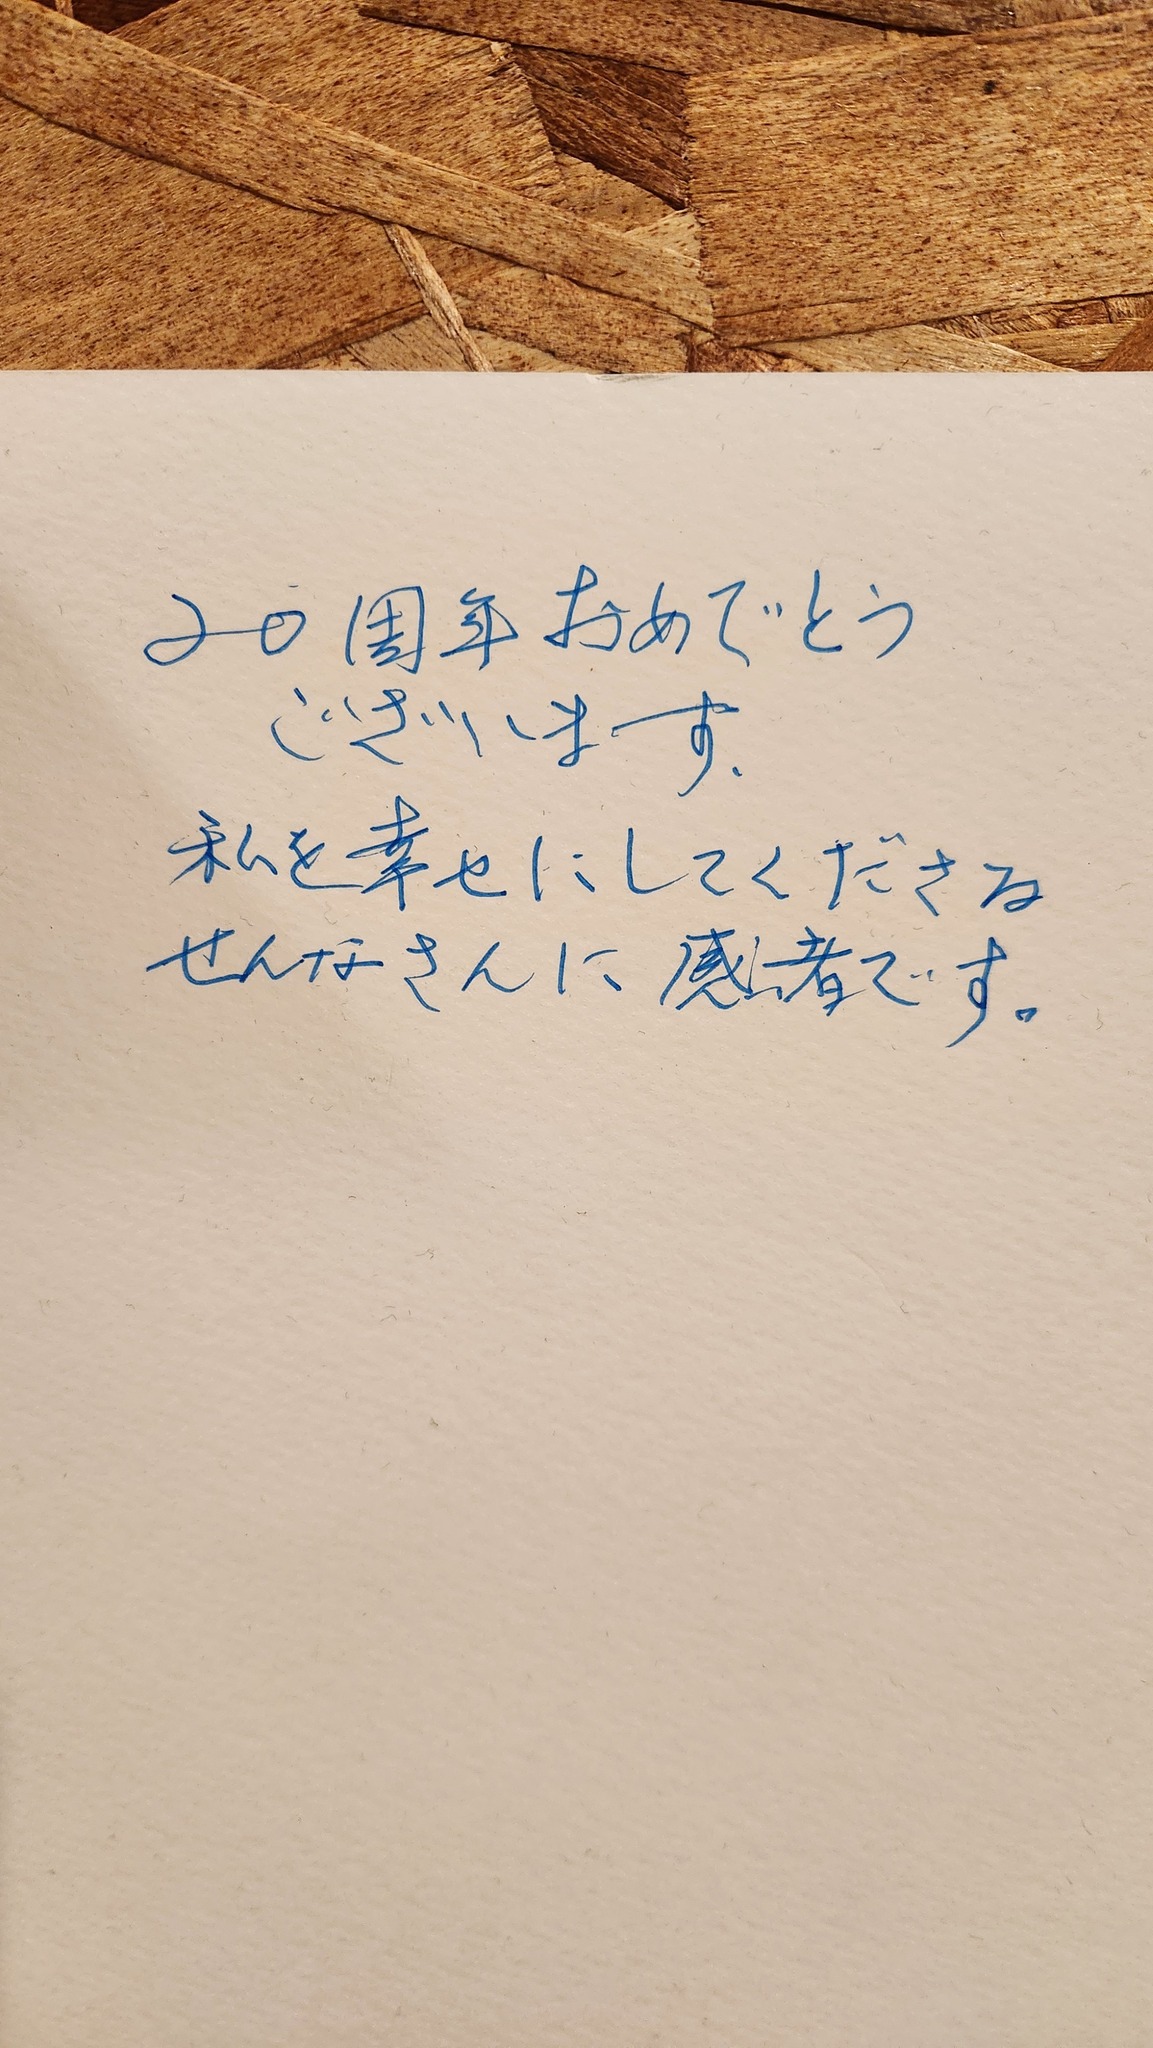 20周年おめでとう
ございます.
私を幸せにしてくださる
せんなさんに感者です。